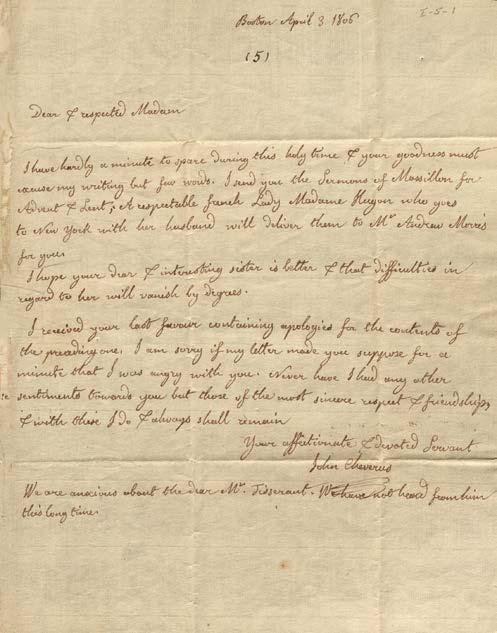 Boston April 3. 1806
I-5-1
(5)
Dear & respected Madam
I have hardly a minute to spare during this holy time & your goodness must
excuse my writing but few words. I send you the Sermons of Massillon for
Advent & Lent; A respectable french Lady Madame Hugon who goes
to New York with her husband will deliver them to Mr Andrew Morris
for you.
I hope your dear & interesting sister is better & that difficulties in
regard to her will vanish by degrees.
I received your last favour containing apologies for the contents of
the preceding one. I am sorry if my letter made you suppose for a
minute that I was angry with you. Never have I had any other
sentiments towards you but those of the most sincere respect & friendship,
& with these I do & always shall remain
Your affectionate & devoted Servant
John Cheverus
We are anxious about the dear Mr. Tisserant. We have not heard from him
this long time.